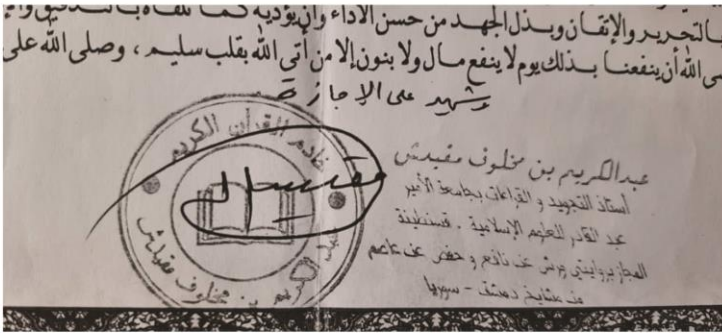 بالتحرير والإتقان وبذل الجهد من حسن الأداء وأن يؤديه كما تلقاه
الله أن ينفعنا بذلك يوم لا ينفع مال ولا بنون إلا من أتى الله بقلب سليم ، وصلى الله على
وشهد على الإجازة
خادم القرآن الكريم
عبد الكريم بن مخلوف مقيدش
عبد الكريم بن مخلوف مقيدش
أستاذ التجويد و القراءات بجامعة الأمير
عبد القادر للعلوم الإسلامية . قسنطينة
المجاز بروايتي ورش عن نافع و حفص عن عاصم
من مشايخ دمشق - سوريا